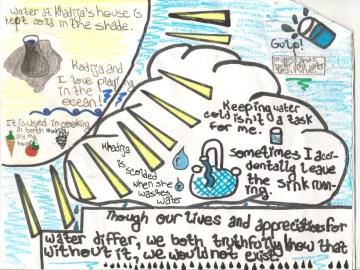 Water at Khadija's house is
kept cold in the shade.
Kadija and
I love playing
in the
ocean!
It is used in cooking
in both
and my
Gulp!
Keeping water
cold isn't a task
for me.
Khadija
is
scolded
when she
wastes
water
sometimes I acci-
dentally leave
the sink runn-
ing.
Though our lives and appreciation for
water differ, we both truthfully know that
without it, we would not exist